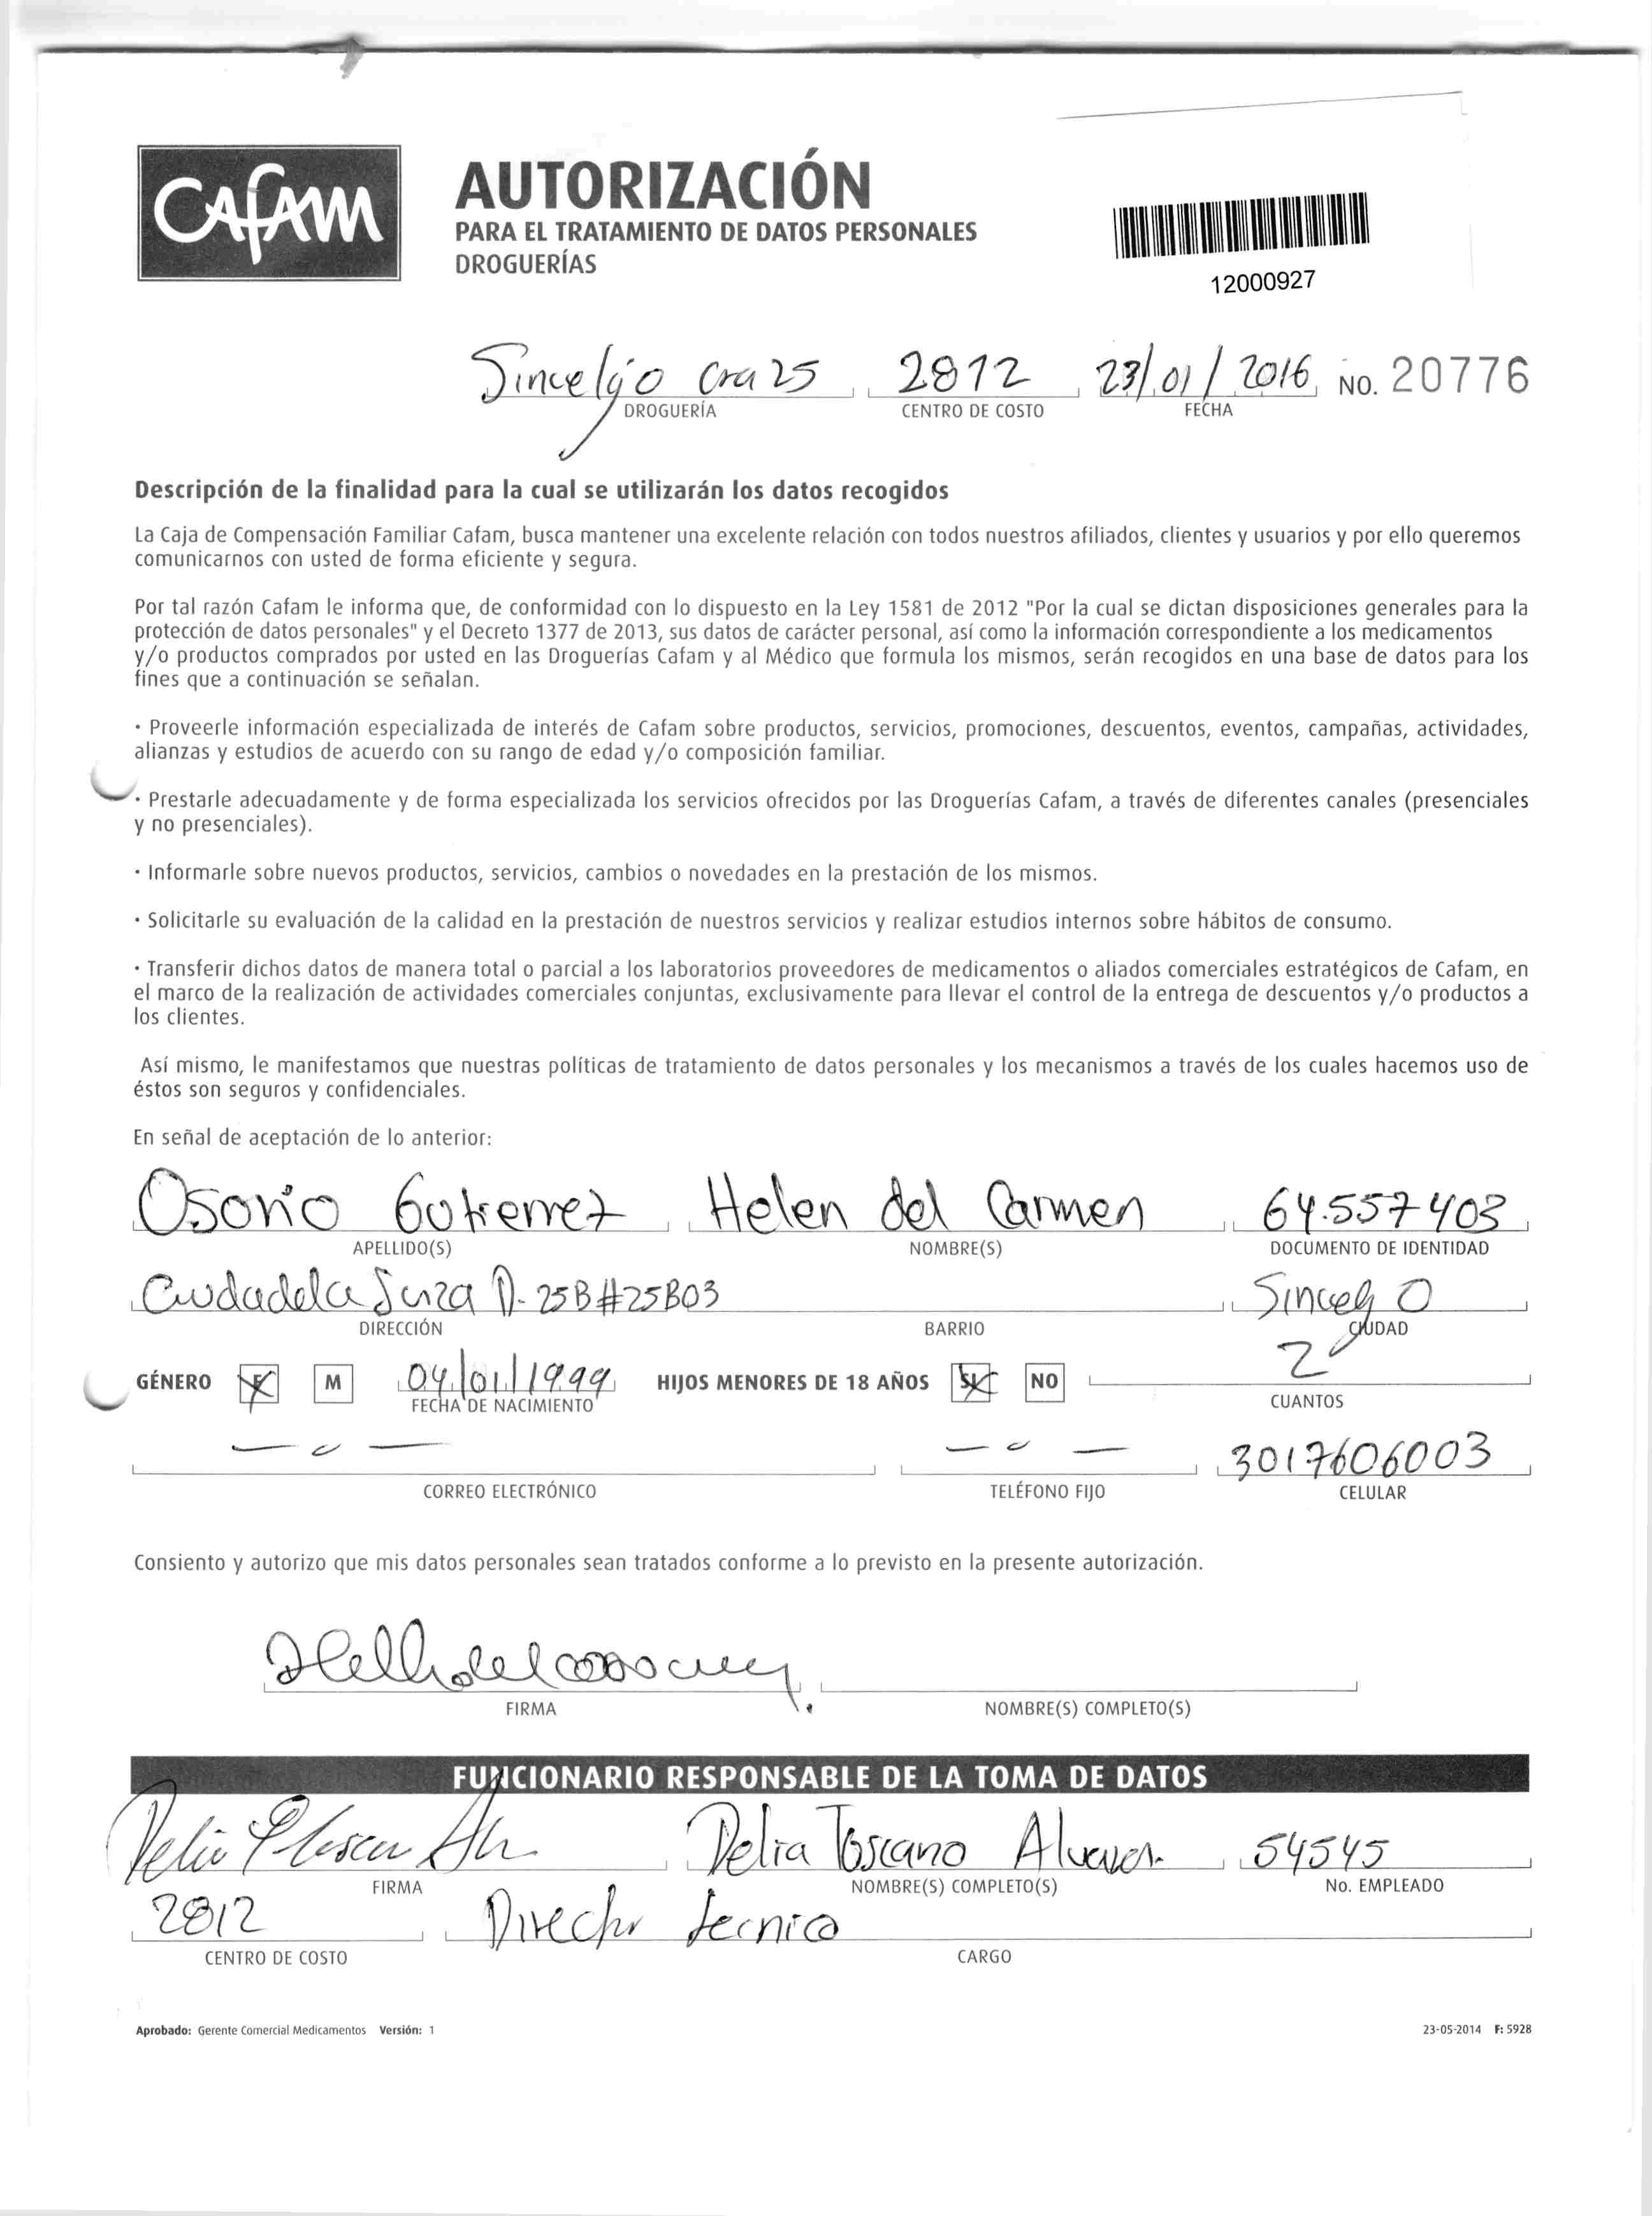 CAfAM
AUTORIZACIÓN
PARA EL TRATAMIENTO DE DATOS PERSONALES
DROGUERÍAS
12000927
Sincelejo Cra 25 2812 23/01/2016 NO. 20776
DROGUERÍA CENTRO DE COSTO FECHA
Descripción de la finalidad para la cual se utilizarán los datos recogidos
La Caja de Compensación Familiar Cafam, busca mantener una excelente relación con todos nuestros afiliados, clientes y usuarios y por ello queremos
comunicarnos con usted de forma eficiente y segura.
Por tal razón Cafam le informa que, de conformidad con lo dispuesto en la Ley 1581 de 2012 "Por la cual se dictan disposiciones generales para la
protección de datos personales" y el Decreto 1377 de 2013, sus datos de carácter personal, así como la información correspondiente a los medicamentos
y/o productos comprados por usted en las Droguerías Cafam y al Médico que formula los mismos, serán recogidos en una base de datos para los
fines que a continuación se señalan.
· Proveerle información especializada de interés de Cafam sobre productos, servicios, promociones, descuentos, eventos, campañas, actividades,
alianzas y estudios de acuerdo con su rango de edad y/o composición familiar.
· Prestarle adecuadamente y de forma especializada los servicios ofrecidos por las Droguerías Cafam, a través de diferentes canales (presenciales
y no presenciales).
· Informarle sobre nuevos productos, servicios, cambios o novedades en la prestación de los mismos.
· Solicitarle su evaluación de la calidad en la prestación de nuestros servicios y realizar estudios internos sobre hábitos de consumo.
· Transferir dichos datos de manera total o parcial a los laboratorios proveedores de medicamentos o aliados comerciales estratégicos de Cafam, en
el marco de la realización de actividades comerciales conjuntas, exclusivamente para llevar el control de la entrega de descuentos y/o productos a
los clientes.
Así mismo, le manifestamos que nuestras políticas de tratamiento de datos personales y los mecanismos a través de los cuales hacemos uso de
éstos son seguros y confidenciales.
En señal de aceptación de lo anterior:
Osorio Gutierrez Helen del Carmen 64.557403
APELLIDO(S) NOMBRE(S) DOCUMENTO DE IDENTIDAD
Ciudadela Suiza D- 25B#25B03 Sincelejo
DIRECCIÓN BARRIO CIUDAD
GÉNERO F M 04/01/1999 HIJOS MENORES DE 18 AÑOS SI NO 2
FECHA DE NACIMIENTO CUANTOS
3017606003
CORREO ELECTRÓNICO TELÉFONO FIJO CELULAR
Consiento y autorizo que mis datos personales sean tratados conforme a lo previsto en la presente autorización.
FIRMA NOMBRE(S) COMPLETO(S)
FUNCIONARIO RESPONSABLE DE LA TOMA DE DATOS
Delia Toscano Alvarez 54545
FIRMA NOMBRE(S) COMPLETO(S) No. EMPLEADO
2812 Director tecnico
CENTRO DE COSTO CARGO
Aprobado: Gerente Comercial Medicamentos Versión: 1 23-05-2014 F: 5928